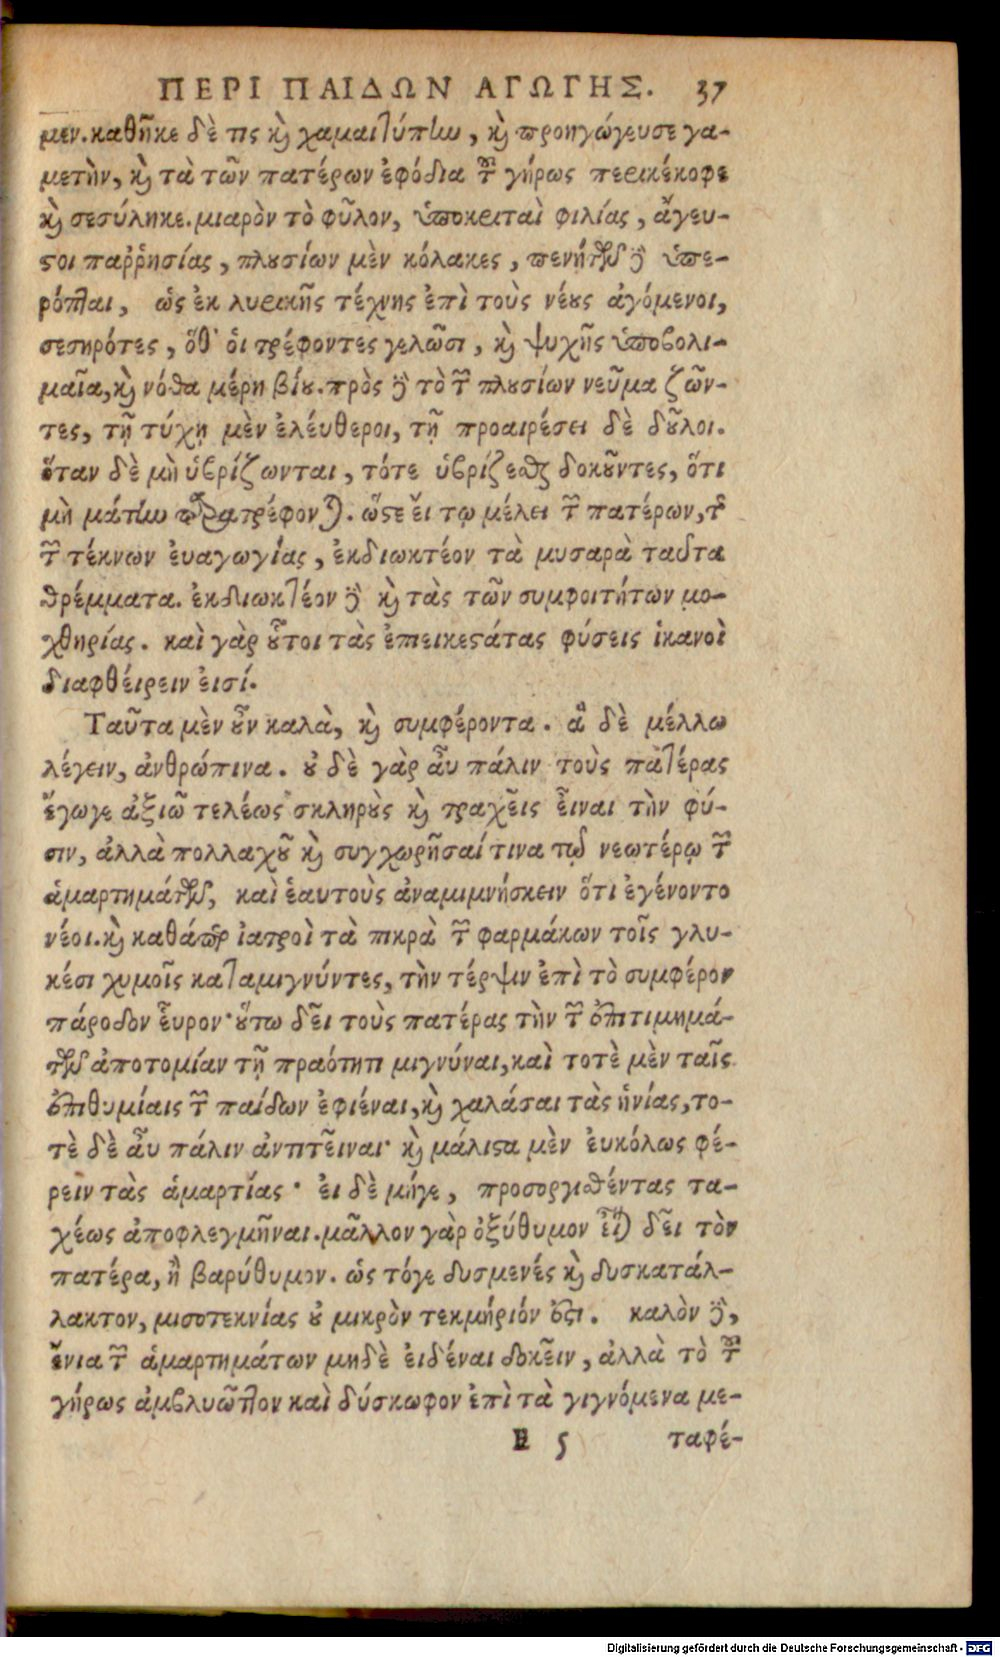 ΠΕΡΙ ΠΑΙΔΩΝ ΑΓΩΓΗΣ. 37
μεν. καθῆκε δὲ τις καὶ χαμαιτύπην, καὶ προηγώγευσε γα-
μετὴν, καὶ τὰ τῶν πατέρων ἐφόδια τοῦ γήρως περικέκοφε
καὶ σεσύληκε. μιαρὸν τὸ φῦλον, ὑποκριταὶ φιλίας, ἄγευ-
στοι παῤῥησίας, πλουσίων μὲν κόλακες, πενήτων δὲ ὑπε-
ρόπται, ὡς ἐκ λυρικῆς τέχνης ἐπὶ τοὺς νέους ἀγόμενοι,
σεσηρότες, ὅθ' ὁι τρέφοντες γελῶσι, καὶ ψυχῆς ὑποβολι-
μαῖα, καὶ νόθα μέρη βίου. πρὸς δὲ τὸ τῶν πλουσίων νεῦμα ζῶν-
τες, τῇ τύχῃ μὲν ἐλέυθεροι, τῇ προαιρέσει δὲ δοῦλοι.
ὅταν δὲ μὴ ὑβρίζωνται, τότε ὑβρίζεσθαι δοκοῦντες, ὅτι
μὴ μάτην παρατρέφονται. ὥστε ἔι τῳ μέλει τῶν πατέρων, τῆς
τῶν τέκνων ἐυαγωγίας, ἐκδιωκτέον τὰ μυσαρὰ ταῦτα
θρέμματα. ἐκδιωκτέον δὲ καὶ τὰς τῶν συμφοιτήτων μο-
χθηρίας. καὶ γὰρ οὗτοι τὰς ἐπιεικεστάτας φύσεις ἱκανοὶ
διαφθέιρειν ἐισί.
Ταῦτα μὲν οὖν καλὰ, καὶ συμφέροντα. ἃ δὲ μέλλω
λέγειν, ἀνθρώπινα. οὐ δὲ γὰρ ἆυ πάλιν τοὺς πατέρας
ἔγωγε ἀξιῶ τελέως σκληροὺς καὶ τραχεῖς εἶναι τὴν φύ-
σιν, ἀλλὰ πολλαχοῦ καὶ συγχωρῆσαί τινα τῷ νεωτέρῳ τῶν
ἁμαρτημάτων, καὶ ἑαυτοὺς ἀναμιμνήσκειν ὅτι ἐγένοντο
νέοι. καὶ καθάπερ ἰατροὶ τὰ πικρὰ τῶν φαρμάκων τοῖς γλυ-
κέσι χυμοῖς καταμιγνύντες, τὴν τέρψιν ἐπὶ τὸ συμφέρον
πάροδον ἕυρον· οὕτω δεῖ τοὺς πατέρας τὴν τῶν ἐπιτιμημά-
των ἀποτομίαν τῇ πραότητι μιγνύναι, καὶ τοτὲ μὲν ταῖς
ἐπιθυμίαις τῶν παίδων ἐφιέναι, καὶ χαλάσαι τὰς ἡνίας, το-
τὲ δὲ ἆυ πάλιν ἀντιτεῖναι· καὶ μάλιστα μὲν ἐυκόλως φέ-
ρειν τὰς ἁμαρτίας· ἐι δὲ μήγε, προσοργισθέντας τα-
χέως ἀποφλεγμῆναι. μᾶλλον γὰρ ὀξύθυμον εἶναι δεῖ τὸν
πατέρα, ἢ βαρύθυμον. ὡς τόγε δυσμενές καὶ δυσκατάλ-
λακτον, μισοτεκνίας οὐ μικρὸν τεκμήριόν ἐστι. καλὸν δὲ,
ἔνια τῶν ἁμαρτημάτων μηδὲ ἐιδέναι δοκεῖν, ἀλλὰ τὸ τοῦ
γήρως ἀμβλυῶπτον καὶ δύσκωφον ἐπὶ τὰ γιγνόμενα με-
E 5 ταφέ-
Digitalisierung gefördert durch die Deutsche Forschungsgemeinschaft - DFG